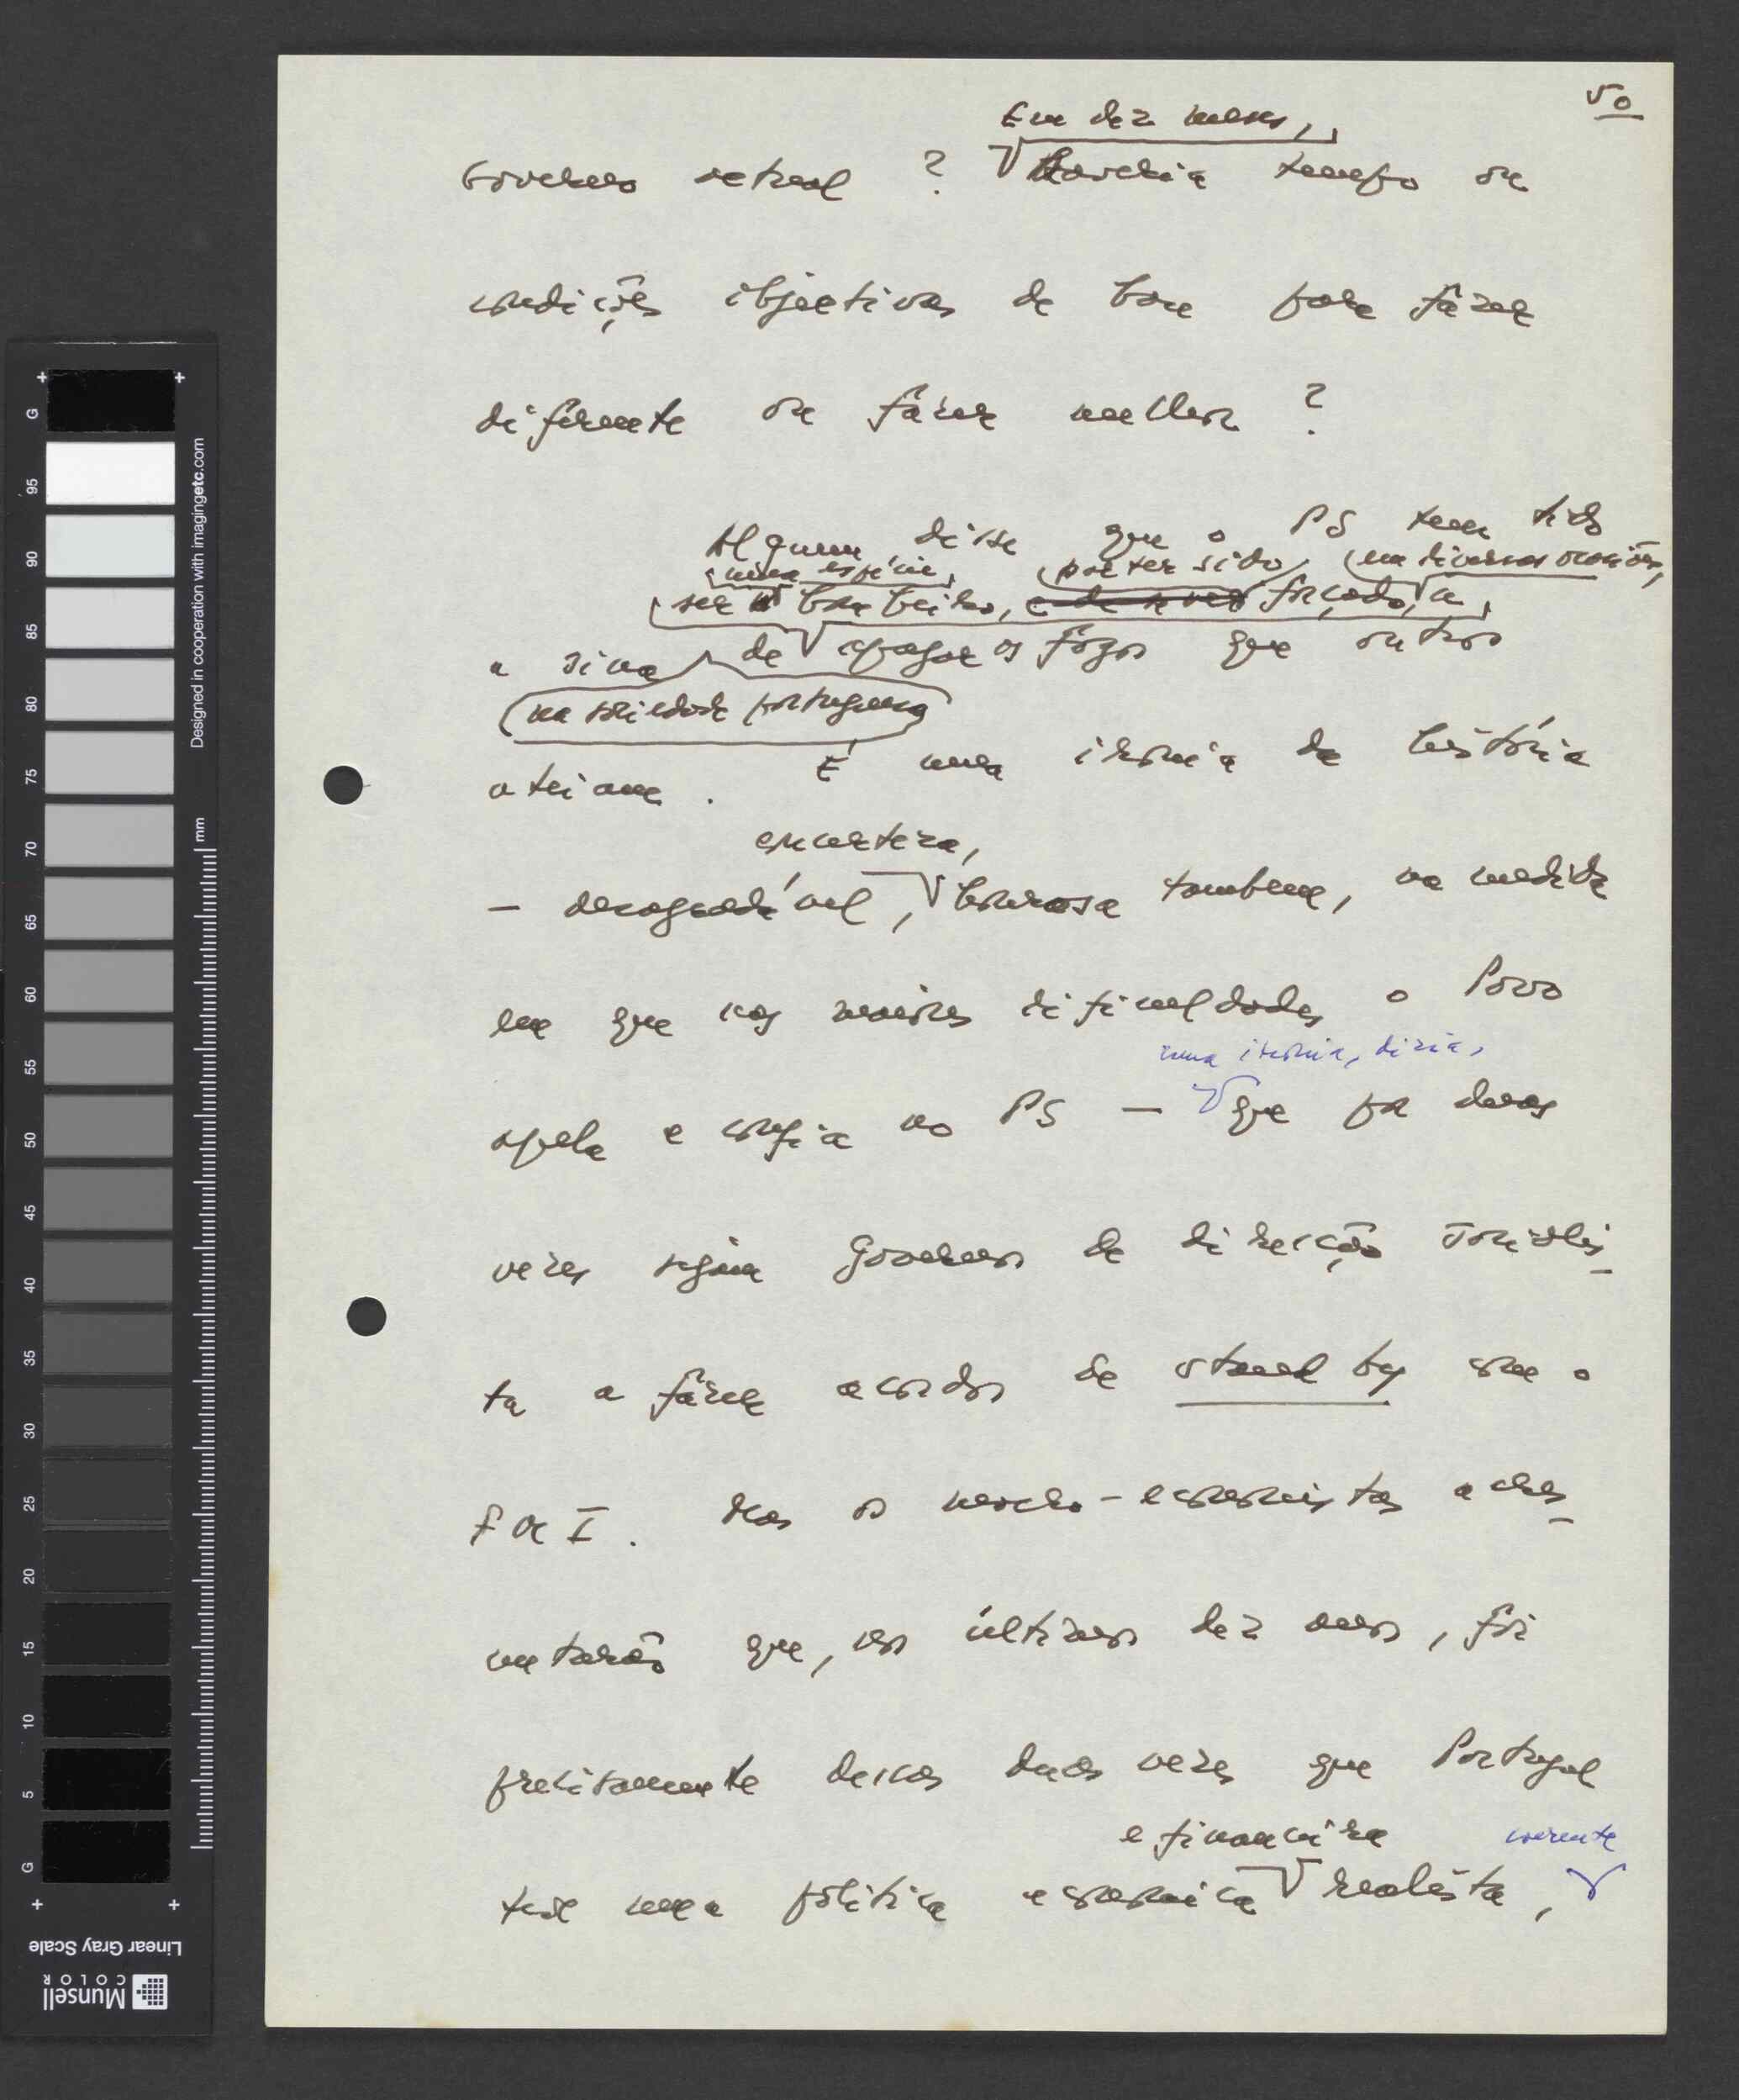 50
Em dez meses,
Governo actual ? Haveria tempo ou
condições objectivas de base para fazer
diferente ou fazer melhor ?
Alguém disse que o PS tem tido
uma espécie, por ter sido, em diversas ocasiões,
ser bombeiro, forçado, a
a sina de apagar os fogos que outros
na sociedade portuguesa
ateiam . É uma ironia da história
encorteza,
– desagradável, honrosa também, na medida
em que nas maiores dificuldades o Povo
uma ironia, diria,
apela e confia no PS – que por duas
vezes sejam Governos de direcção Socialis-
ta a fazer acordos de stand by com o
FMI . Mas os macro-economistas aches-
que, nos últimos dez anos, foi
precisamente dessas duas vezes que Portugal
e financeira coerente
teve uma política económica realista,